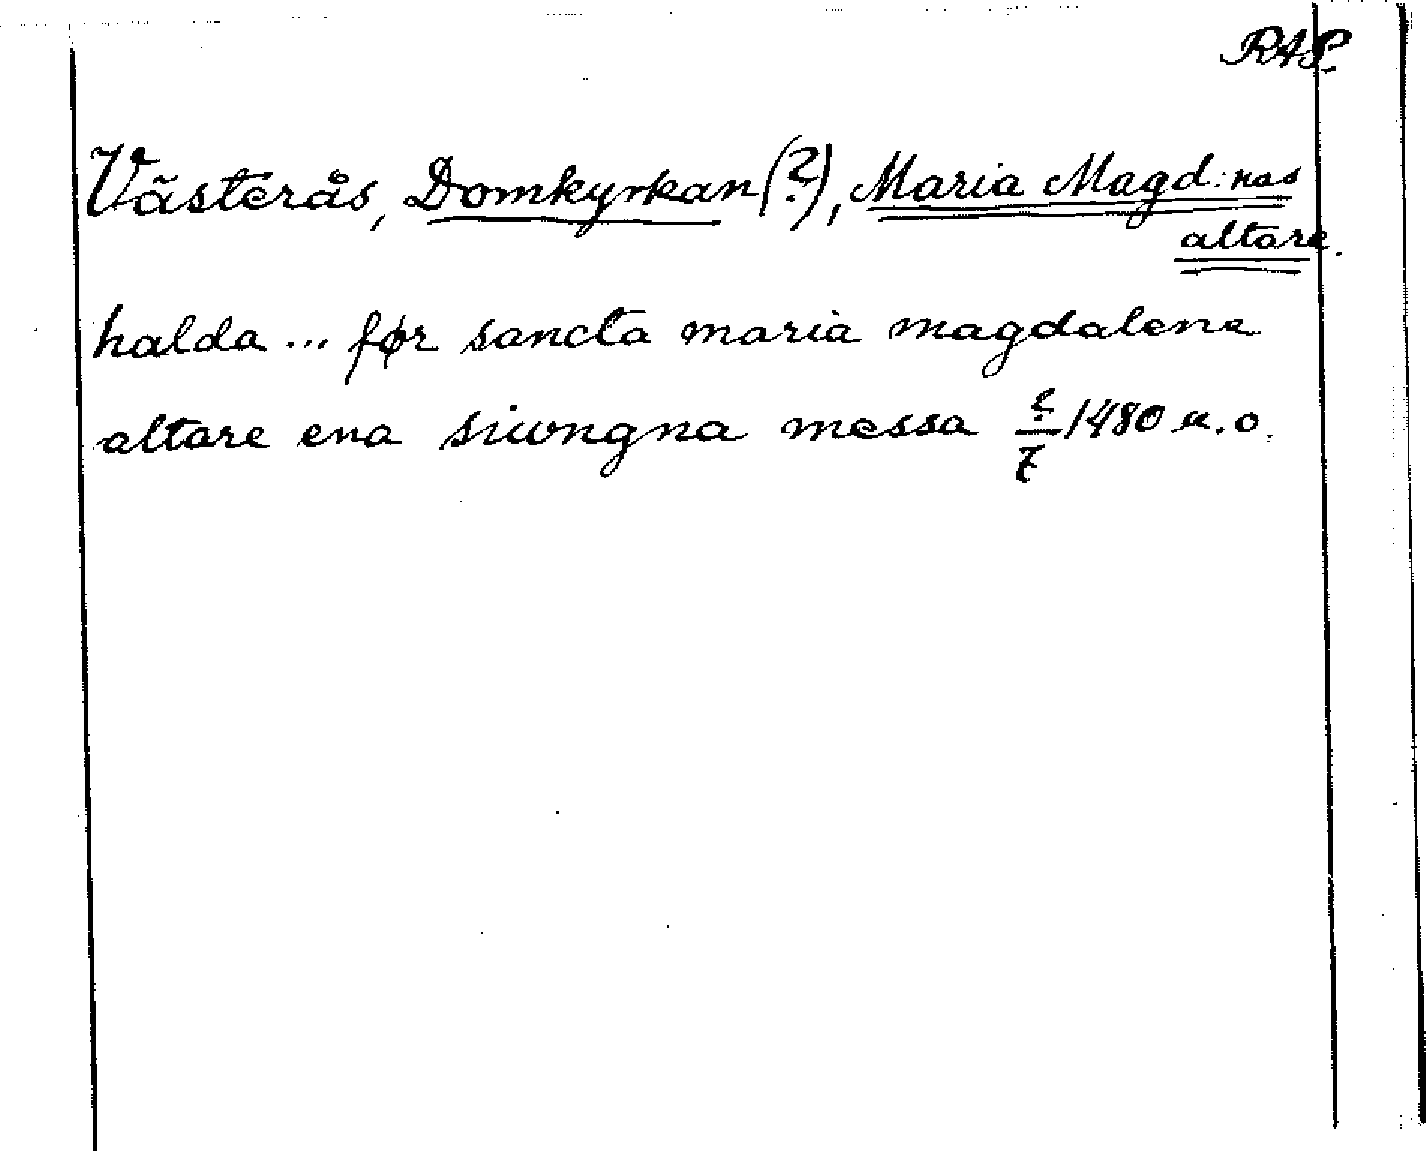 RAP.
Västerås, Domkyrkan (?), Maria Magd:nas
altare.
halda ... før sancta maria magdalene
altare ena siwngna messa /1480 u.o.